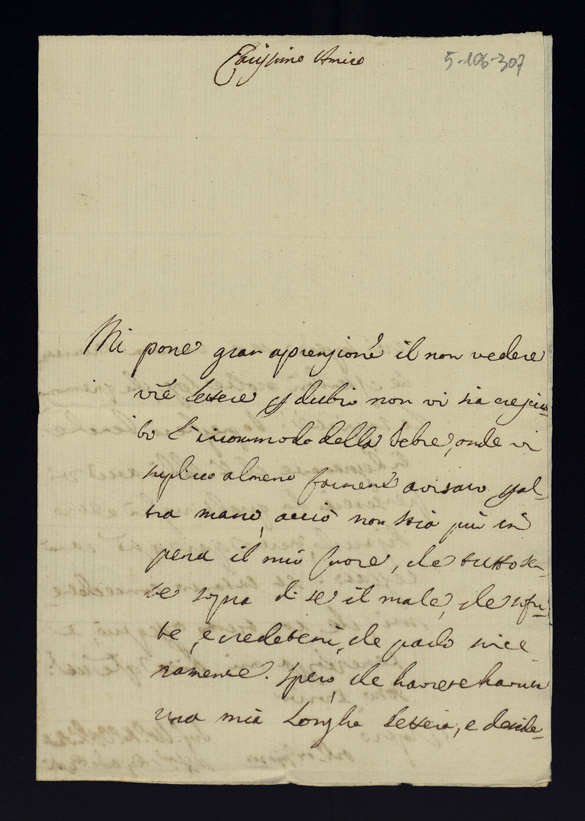 Carissimo Amico
5-106-307
Mi pone gran aprensione il non vedere
vre lettere per dubio non vi sia cresciu-
to l'incommodo della febre, onde vi
suplico almeno farmene avisato per al-
tra mano, acciò non stia più in
pena il mio Cuore, che tutto sen-
te sopra di se il male, che sofri-
te, e credetemi, che parlo since
ramente. Spero, che havrete havuta
una mia longha lettera, e deside-